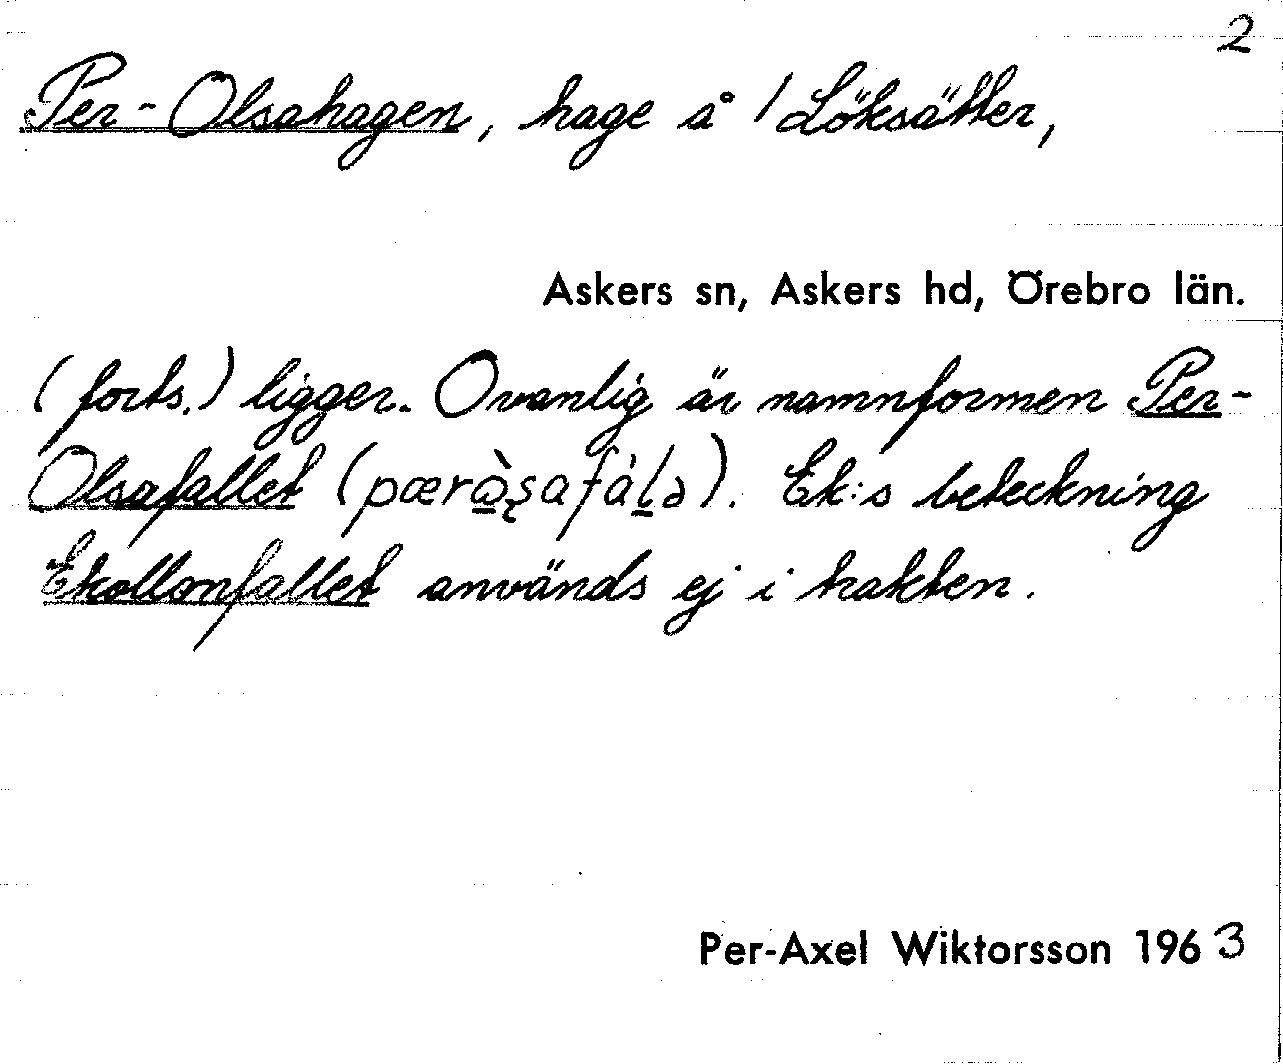 2
Per-Olsahagen, hage å 1 Löksätter,
Askers sn, Askers hd, Örebro län.
(forts.) ligger. Ovanlig är namnformen Per-
Olsafallet ( ). Ek:s beteckning
Ekollonfallet används ej i trakten.
Per-Axel Wiktorsson 1963